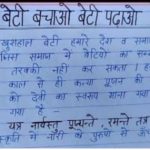 बेटी बचाओ बेटी पढाओ
खुशहाल बेटी हमारे देश व समाज
जिस समाज में बेटियों का सम्म
तरक्की नहीं कर सकता ।
काल से ही कन्या पूजन की
को देवी का स्वरूप माना गया
गया है
यत्र नार्यस्तु पूज्यन्ते , रमन्ते तत्र
में नारी के